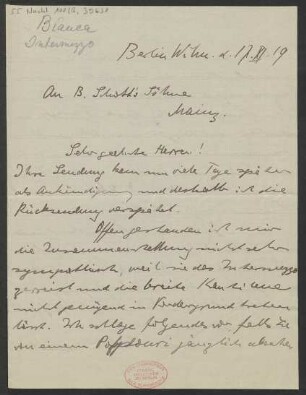 55 Nachl
Bianca
Intermezzo
Berlin Wilm. d. 17. 19
An B. Schott's Söhne
Mainz.
Sehr geehrte Herren!
Ihre Sendung kam um viele Tage später
als Ankündigung und deshalb ist die
Rücksendung verspätet.
Offengestanden ist mir
die Zusammenstellung nicht sehr
sympathisch, weil sie das Intermezzo
zerreisst und die breite Kantilene
nicht genügend in Vordergrund treten
lässt. Ich schlage folgendes vor, falls Sie
von einem Potpourri gänzlich absehen